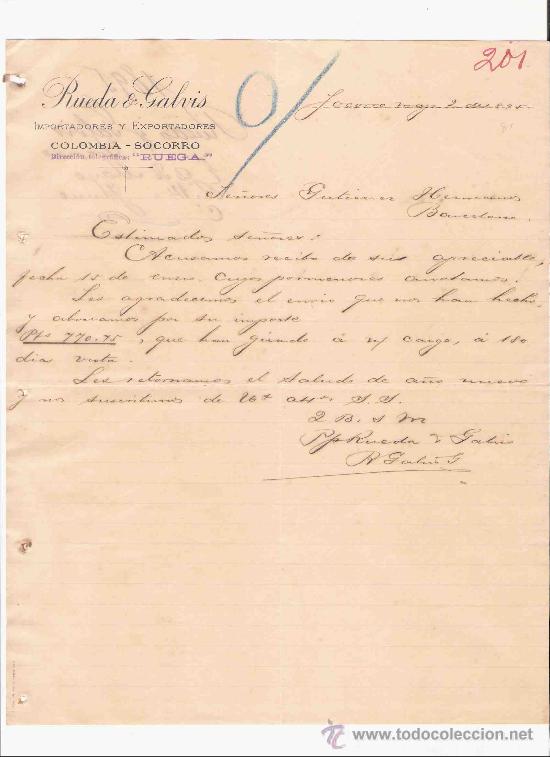 201
Rueda & Galvis
IMPORTADORES Y EXPORTADORES
COLOMBIA - SOCORRO
Dirección telegráfica: "RUEGA"
Socorro 2 de 189
Señores Gutierrez Hermanos
Barcelona
Estimados Señores:
Acusamos recibo de su apreciable,
fecha 15 de enero cuyos pormenores anotamos.
Les agradecemos el envio que nos han hecho
y abonamos por su importe
Pts 770.75, que han girado á n/ cargo, á 180
dias vista.
Les retornamos el saludo de año nuevo
y nos suscribimos de Uds S. S.
Q B. S M
Pp Rueda & Galvis
R Galvis G
www.todocoleccion.net